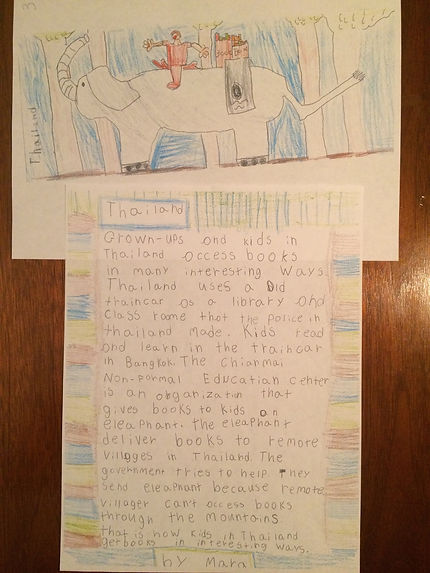 3
Thailand
BOOKS
Thailand
Grown-ups and kids in
Thailand access books
in many interesting ways
Thailand uses a old
traincar as a library and
class rome that the police in
thailand made. Kids read
and learn in the traincar
in Bangkok. The Chianmai
Non-pormal Education Center
is an organizatin that
gives books to kids on
eleaphant. the eleaphant
deliver books to remote
villages in Thailand. The
government tries to help. They
send eleaphant because remote
villager can't access books
through the mountains
that is how kids in Thailand
getbooks in interesting ways.
by Mara